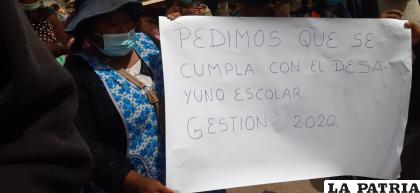 PEDIMOS QUE SE
CUMPLA CON EL DESA-
YUNO ESCOLAR.
GESTION 2020
LA PATRIA